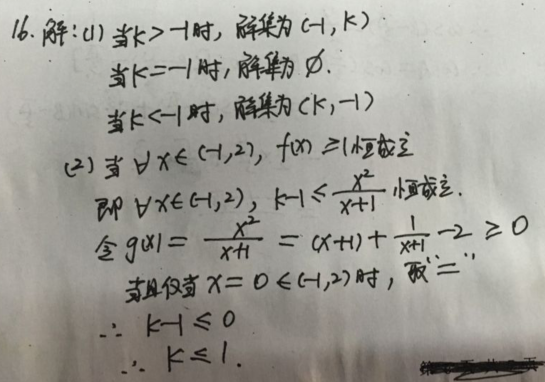 16. 解:(1) 当k>-1时, 解集为(-1, k)
当k=-1时, 解集为∅.
当k<-1时, 解集为(k, -1)
(2) 当∀x∈(-1,2), f(x)≥1恒成立
即∀x∈(-1,2), k-1≤x²/(x+1) 恒成立.
令g(x)= x²/(x+1) = (x+1)+1/(x+1)-2≥0
当且仅当x=0∈(-1,2)时, 取"="
∴ k-1≤0
∴ k≤1.